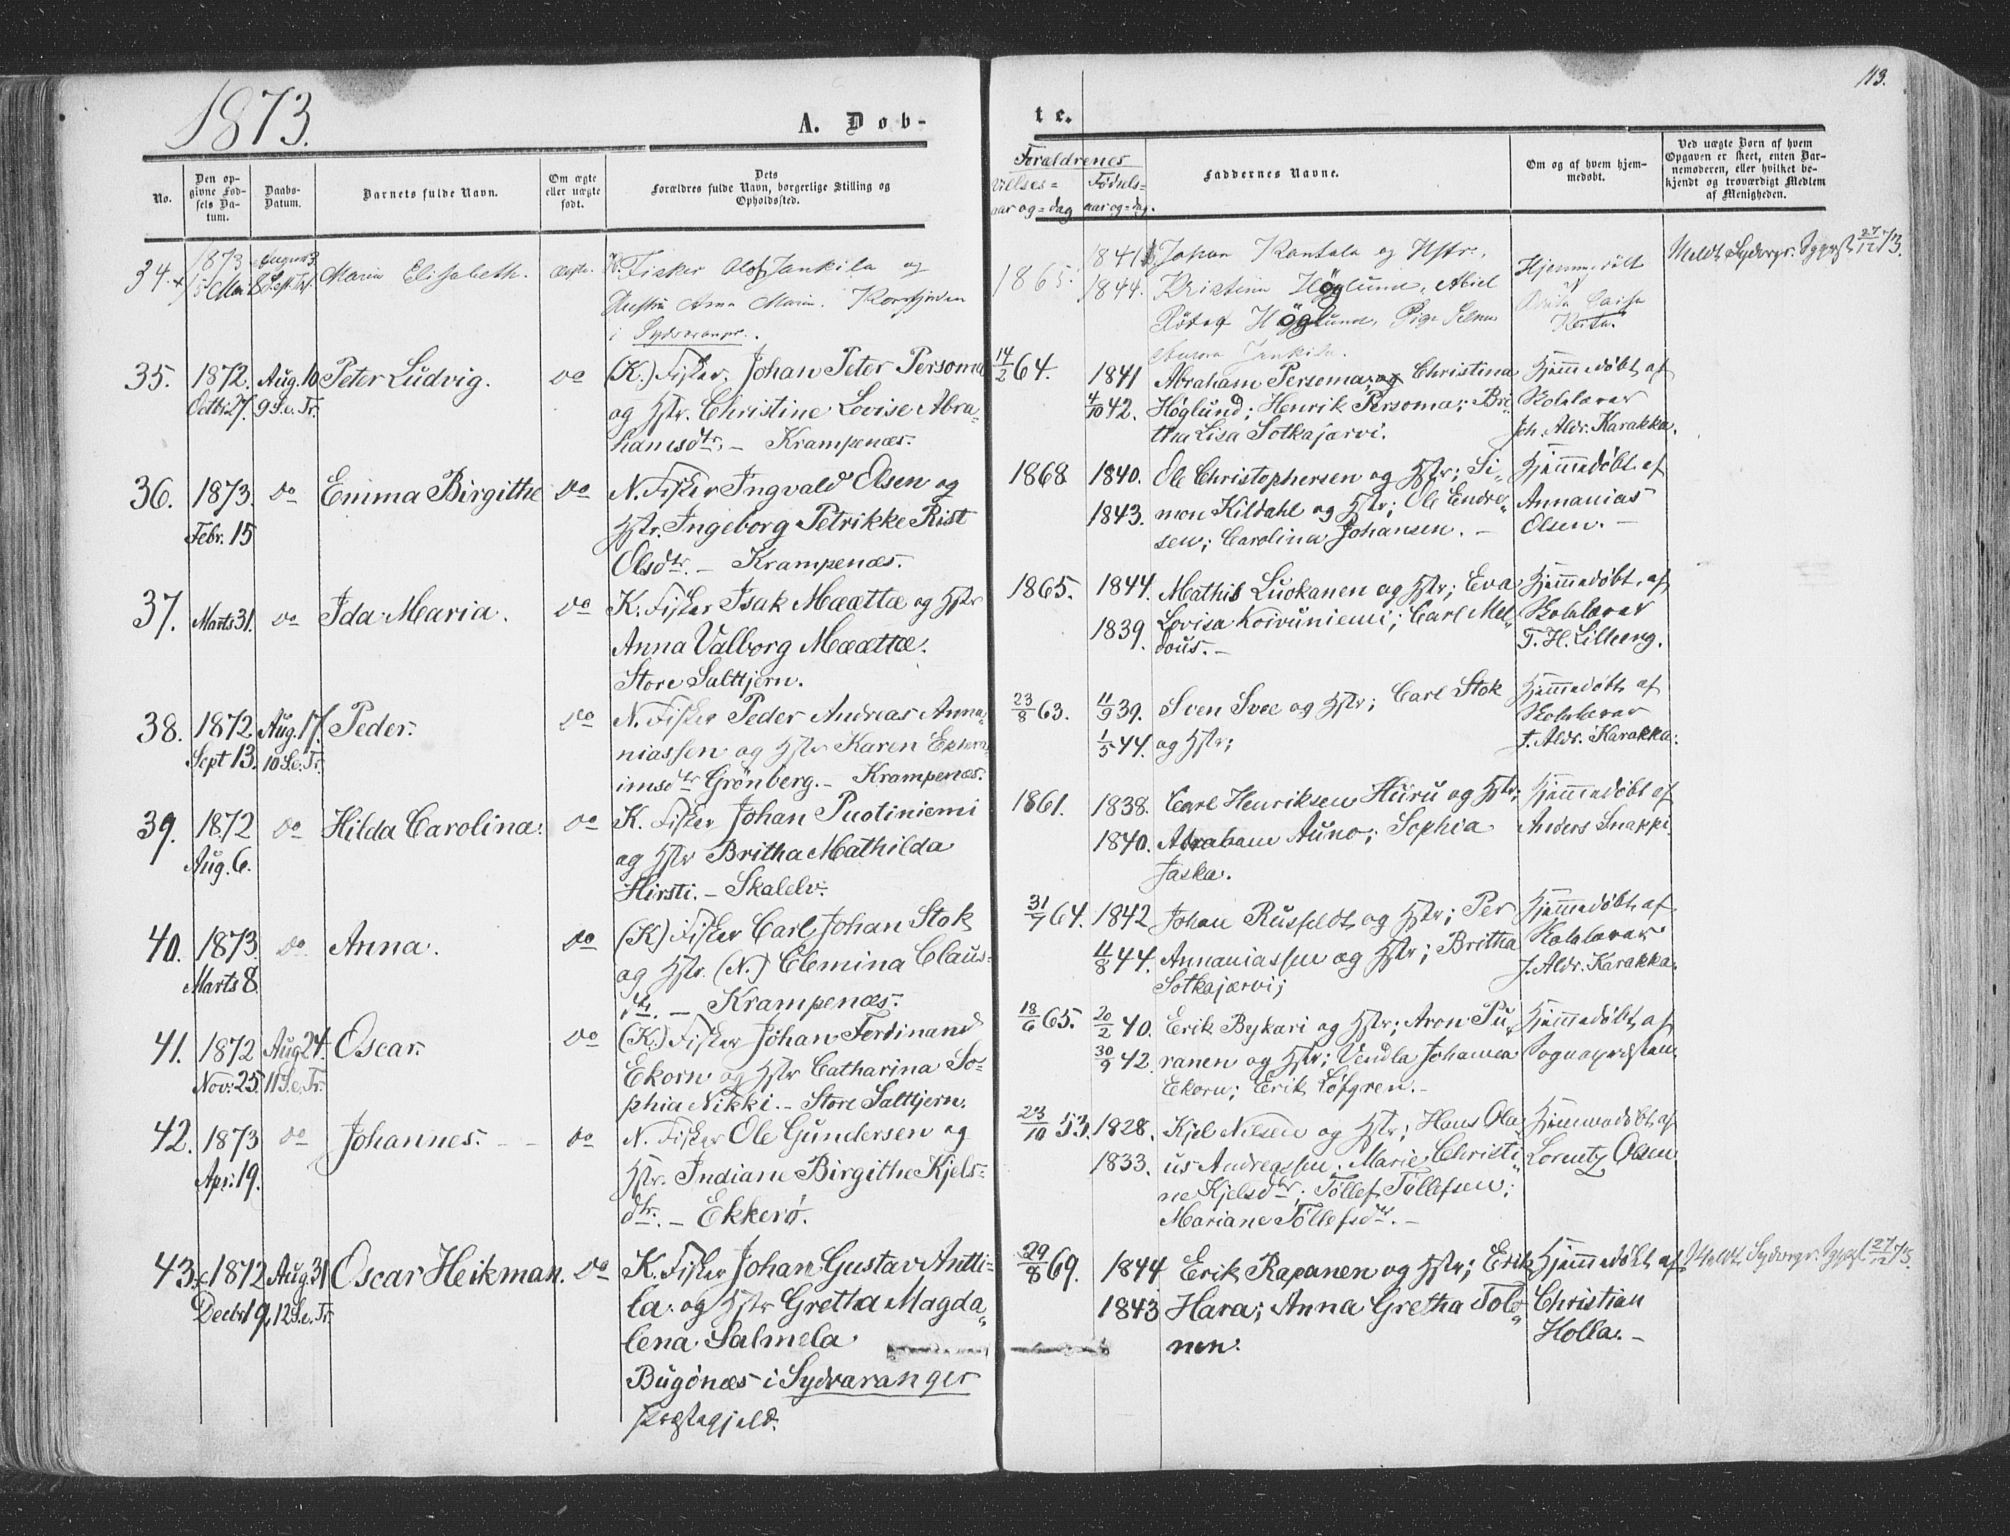 1873.
113.
A. Døb-
te.
No.
Den op-
givne Fød-
sels Da-
tum.
Daabs-
Datum.
Barnets fulde Navn.
Om ægte
eller uægte
født.
Dets
Forældres fulde Navn, borgerlige Stilling og
Opholdssted.
Foraldrenes
Vielses-
aar og-dag
Fødsels-
aar og-dag.
Faddernes Navne.
Om og af hvem hjem-
medøbt.
Ved uægte Børn af hvem
Opgaven er skeet, enten Bar-
nemoderen, eller hvilket be-
kjendt og troværdigt Medlem
af Menigheden.
34.
1873
Maria Elisabeth.
ægte.
K. Fisker Olof Jankila og
Hustru Anna Maria. Korsfjorden
i Sydvaranger.
1865.
1841
1844.
Johan Kantola og Hstr.,
Kristina Høglund, Abiel
Høglund, Pige Selma
Aurora Jankila.
Hjemmedøbt
35.
1872.
Octbr 27.
Aug. 10
9 S. e. Tr.
Peter Ludvig.
do
(K.) Fisker Johan Peter Persoma
og Hstr. Christine Lovise Abra-
hamsdtr. – Krampenæs.
14/2 64.
1841
4/10 42.
Abraham Persoma, og Christina
Høglund; Henrik Persoma; Bri-
tha Lisa Sotkajærvi.
Hjemmedøbt af
Kolelærer
Joh. Aldr. Karakka.
36.
1873.
Febr. 15
do
Emma Birgithe
do
N. Fisker Ingvald Olsen og
Hstr. Ingeborg Petrikke Rist
Olsdtr. – Krampenæs.
1868
1840.
1843.
Ole Christophersen og Hstr; Si-
mon Kildahl og Hstr; Ole Endre-
sen; Carolina Johansen. –
Hjemmedøbt af
Annanias
Olsen. –
37.
Marts 31.
do
Ida Maria.
do
K. Fisker Isak Mæættæ og Hstr
Anna Valborg Mæættæ.
Store Saltfjern.
1865.
1844.
1839.
Mathis Luokanen og Hstr; Eva
Lovisa Koivuniemi; Carl Mel-
dous. –
Hjemmedøbt af
Skolelærer
T. H. Lilleeng.
38.
1872
Sept 13.
Aug. 17.
10 S. e. Tr.
Peder.
do
N. Fisker Peder Andreas Anna-
niassen og Hstr Karen Efra-
imsdtr Grönberg. – Krampenæs.
23/8 63.
11/9 39.
1/5 44.
Sven Svee og Hstr; Carl Stok
og Hstr;
Hjemmedøbt af
Skolelærer
J. Aldr. Karakka.
39.
1872
Aug. 6.
do
Hilda Carolina.
do
K. Fisker Johan Puotiniemi
og Hstr Britha Mathilda
Hirsti. – Skalelv.
1861.
1838.
1840.
Carl Henriksen Hiiru og Hstr;
Abraham Auno; Sophia
Jaska.
Hjemmedøbt af
Anders Snappi-
40.
1873.
Marts 8.
do
Anna.
do
(K) Fisker Carl Johan Stok
og Hstr. (N.) Elemina Claus-
dtr. – Krampenæs.
31/7 64.
1842
11/8 44.
Johan Rusfeldt og Hstr; Per
Annaniassen og Hstr; Britha
Sotkajærvi;
Hjemmedøbt af
Skolelærer
J. Aldr. Karakka.
41.
1872
Nov. 25.
Aug 24.
11 S. e. Tr.
Oscar.
do
(K.) Fisker Johan Ferdinand
Ekorn og Hstr Catharina So-
phia Nikki. – Store Saltfjern.
18/6 65.
20/2 40.
30/9 42.
Erik Bykari og Hstr; Aron Pu-
ranen og Hstr; Vendla Johanna
Ekorn; Erik Løfgren. –
Hjemmedøbt af
Sognepræsten
42.
1873
Apr. 19.
do
Johannes.
do
N. Fisker Ole Gundersen og
Hstr. Indiane Birgithe Kjels-
dtr. – Ekkerø.
23/10 53.
1828.
1833.
Kjel Nilsen og Hstr; Hans Ola-
us Andreassen; Marie Christi-
ne Kjelsdtr; Tollef Tollefsen;
Mariane Tollefsdtr. –
Hjemmedøbt af
Lorentz Olsen
43.
1872
Decbr 19.
Aug. 31
12 S. e. Tr.
Oscar Heikman.
do
K. Fisker Johan Gustav Antti-
la og Hstr Gretha Magda-
lena Salmela
Bugönæs i Sydvaranger
Præstegjeld.
29/8 69.
1844
1843
Erik Rapanen og Hstr; Erik
Hara; Anna Gretha Tolo-
nen.
Hjemmedøbt af
Christian
Holla. –